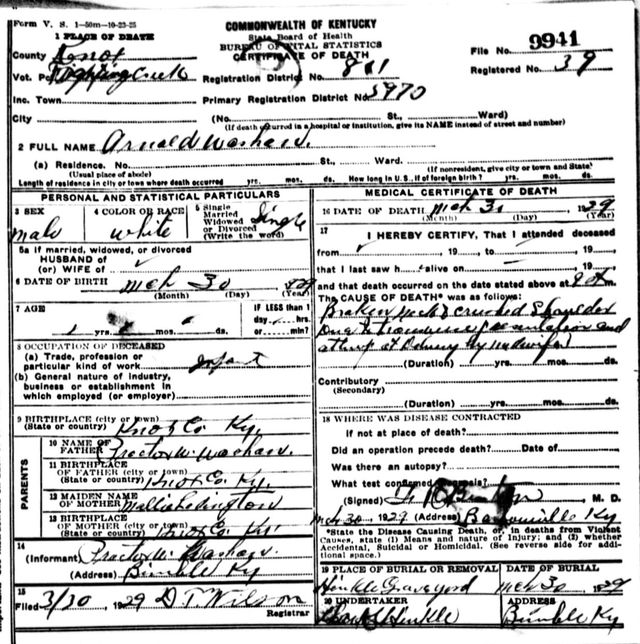 Form V. S. 1-50m-10-23-25
COMMONWEALTH OF KENTUCKY
State Board of Health
BUREAU OF VITAL STATISTICS
CERTIFICATE OF DEATH
1 PLACE OF DEATH
County Knox
File No. 9941
Vot. Pct. Fighting Creek
Registration District No. 811
Registered No. 39
Inc. Town
Primary Registration District No. 5970
City (No. St., Ward)
(If death occurred in a hospital or institution, give its NAME instead of street and number)
2 FULL NAME Arnald
(a) Residence. No. St., Ward.
(Usual place of abode) (If nonresident, give city or town and State)
Length of residence in city or town where death occurred yrs. mos. ds. How long in U. S., if of foreign birth? yrs. mos. ds.
PERSONAL AND STATISTICAL PARTICULARS
3 SEX male
4 COLOR OR RACE white
5 Single Married Widowed or Divorced (Write the word) Single
5a If married, widowed, or divorced
HUSBAND of
(or) WIFE of
6 DATE OF BIRTH Mch 30 1929
(Month) (Day) (Year)
7 AGE
IF LESS than 1 day hrs.
or min.
yrs. ds.
8 OCCUPATION OF DECEASED
(a) Trade, profession or particular kind of work Infant
(b) General nature of industry, business or establishment in which employed (or employer)
9 BIRTHPLACE (city or town)
(State or country) Knox Co. Ky.
PARENTS
10 NAME OF FATHER Proctor W.
11 BIRTHPLACE OF FATHER (city or town)
(State or country) Knox Co. Ky.
12 MAIDEN NAME OF MOTHER Mollie
13 BIRTHPLACE OF MOTHER (city or town)
(State or country) Knox Co. Ky.
14
(Informant) Proctor W.
(Address) Bimble Ky
15
Filed 3/30 1929 D T Wilson
Registrar
MEDICAL CERTIFICATE OF DEATH
16 DATE OF DEATH Mch 30 1929
(Month) (Day) (Year)
17
I HEREBY CERTIFY, That I attended deceased
from 19 to 19
that I last saw h alive on 19
and that death occurred on the date stated above at m.
The CAUSE OF DEATH* was as follows:
Broken neck & crushed shoulder
Due to presentation and
at by midwife
(Duration) yrs. mos. ds.
Contributory
(Secondary)
(Duration) yrs. mos. ds.
18 WHERE WAS DISEASE CONTRACTED
If not at place of death?
Did an operation precede death? Date of
Was there an autopsy?
What test confirmed diagnosis?
(Signed) M. D.
Mch 30 1929 (Address) Barbourville Ky
*State the Disease Causing Death, or, in deaths from Violent Causes, state (1) Means and nature of Injury; and (2) whether Accidental, Suicidal or Homicidal. (See reverse side for additional space.)
19 PLACE OF BURIAL OR REMOVAL
DATE OF BURIAL
Hinkle Graveyard Mch 30 1929
20 UNDERTAKER
ADDRESS
Hinkle Bimble Ky